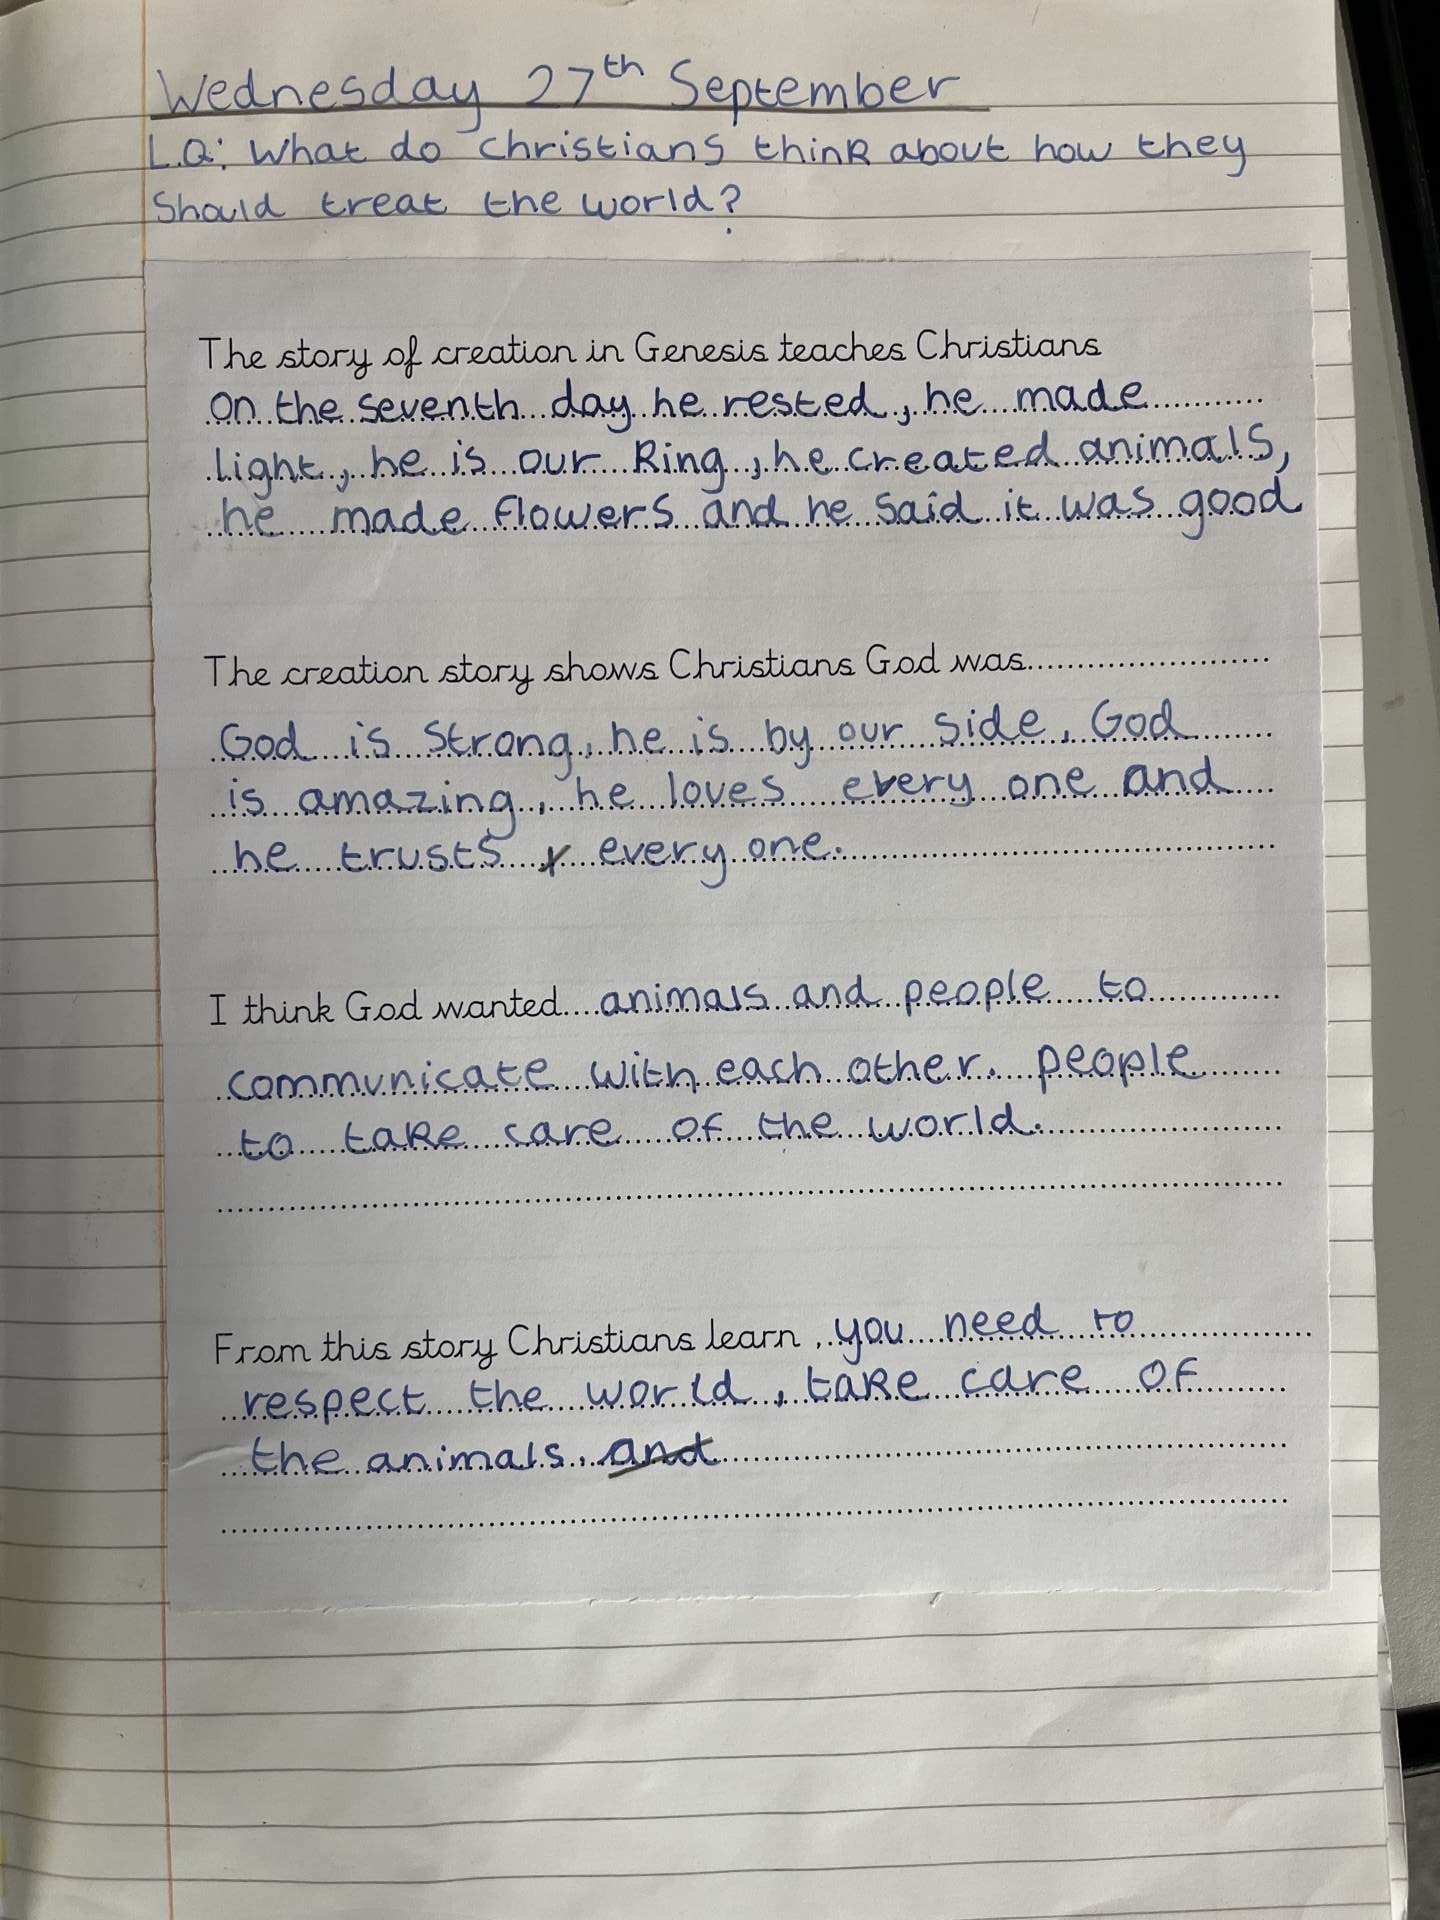 Wednesday 27th September
L.Q: What do christians think about how they
Should treat the world?
The story of creation in Genesis teaches Christians
on the seventh day he rested, he made
light, he is our King, he created animals,
he made flowers and he said it was good
The creation story shows Christians God was
God is strong, he is by our side, God
is amazing, he loves every one and
he trusts every one.
I think God wanted animals and people to
communicate with each other. people
to take care of the world.
From this story Christians learn , you need to
respect the world, take care of
the animals. and